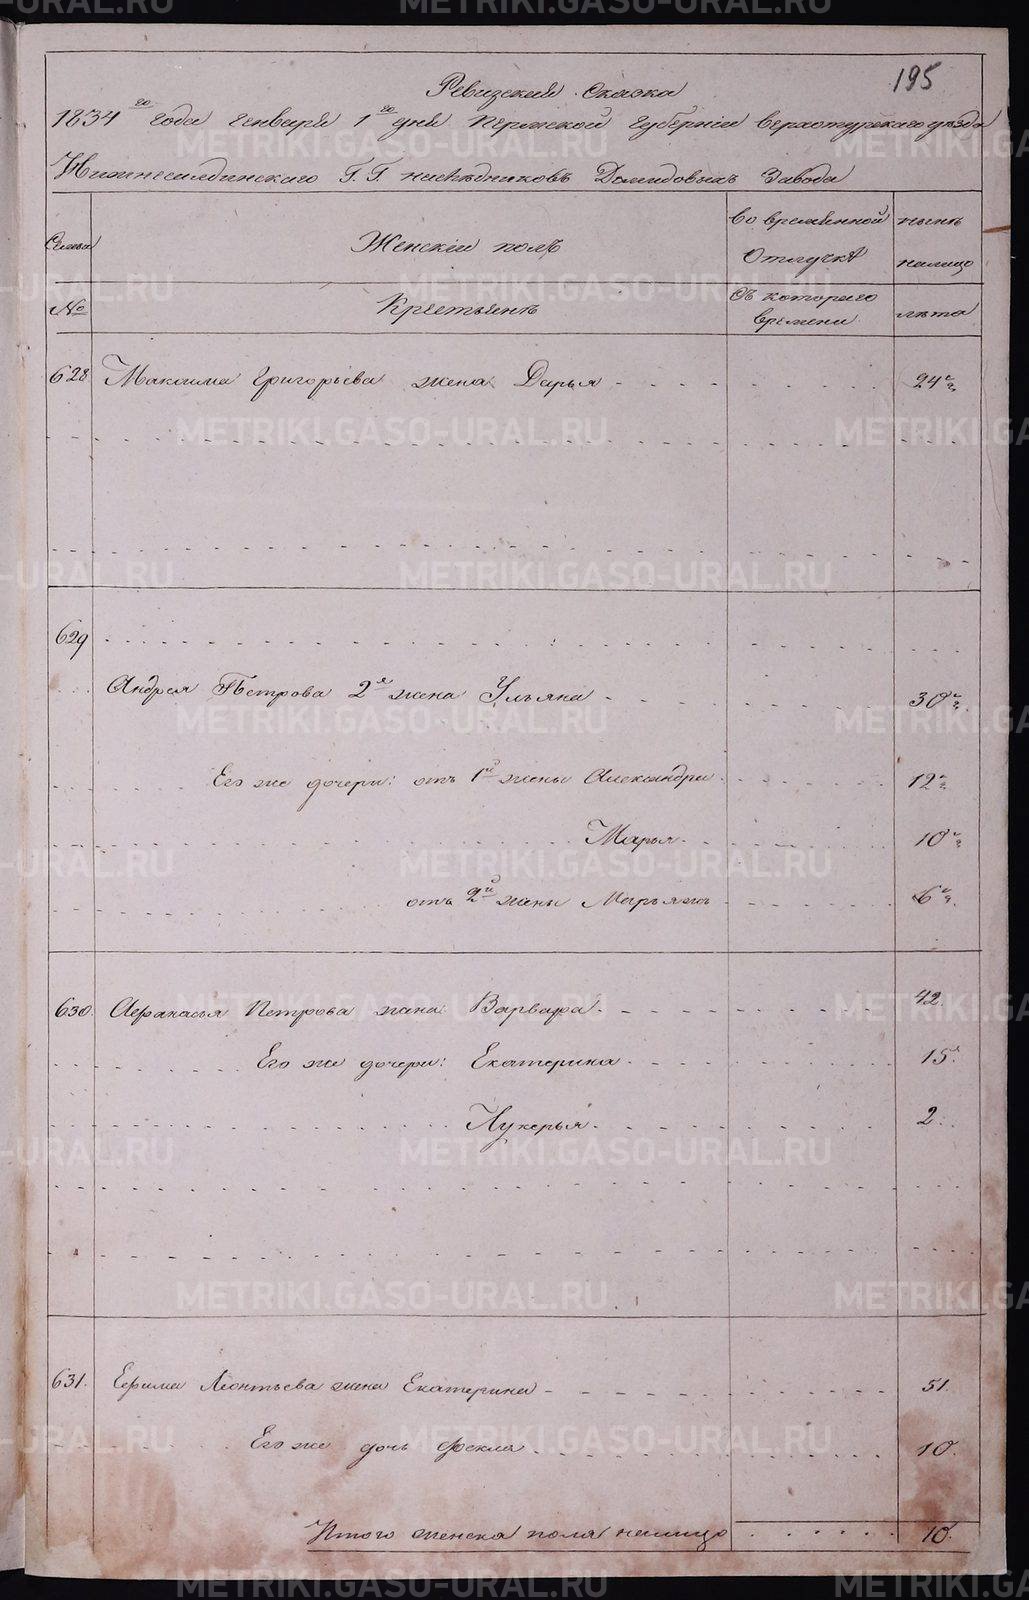 195
Ревизская Сказка
1834го года Генваря 1го дня Пермской Губернии Верхотурского уезда
Нижнесалдинскаго Г. Г. наследниковъ Демидовыхъ Завода
Семьи
Женскiй полъ
во временной Отлучкѣ
нынѣ налицо
№
Крестьянъ
Съ котораго времени
лѣта
628 Максима Григорьева жена Дарья 24
629
Андрея Петрова 2я жена Ульяна 30
Его же дочери: отъ 1й жены Александра 12
Марья 10
отъ 2й жены Марья 6
630. Афанасья Петрова жена Варвара 42.
Его же дочери: Екатерина 15.
Лукерья 2.
631. Ефима Леонтьева жена Екатерина 51.
Его же дочь Фекла 10.
Итого женска пола налицо 10.
METRIKI.GASO-URAL.RU